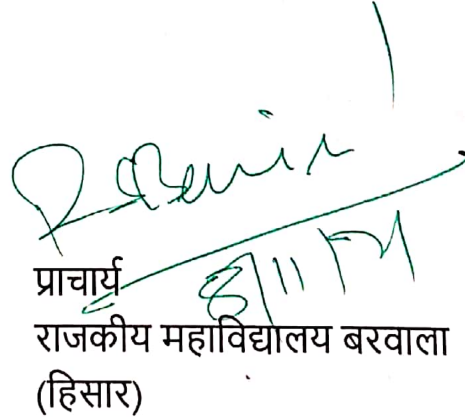 8/11/24
प्राचार्य
राजकीय महाविद्यालय बरवाला
(हिसार)